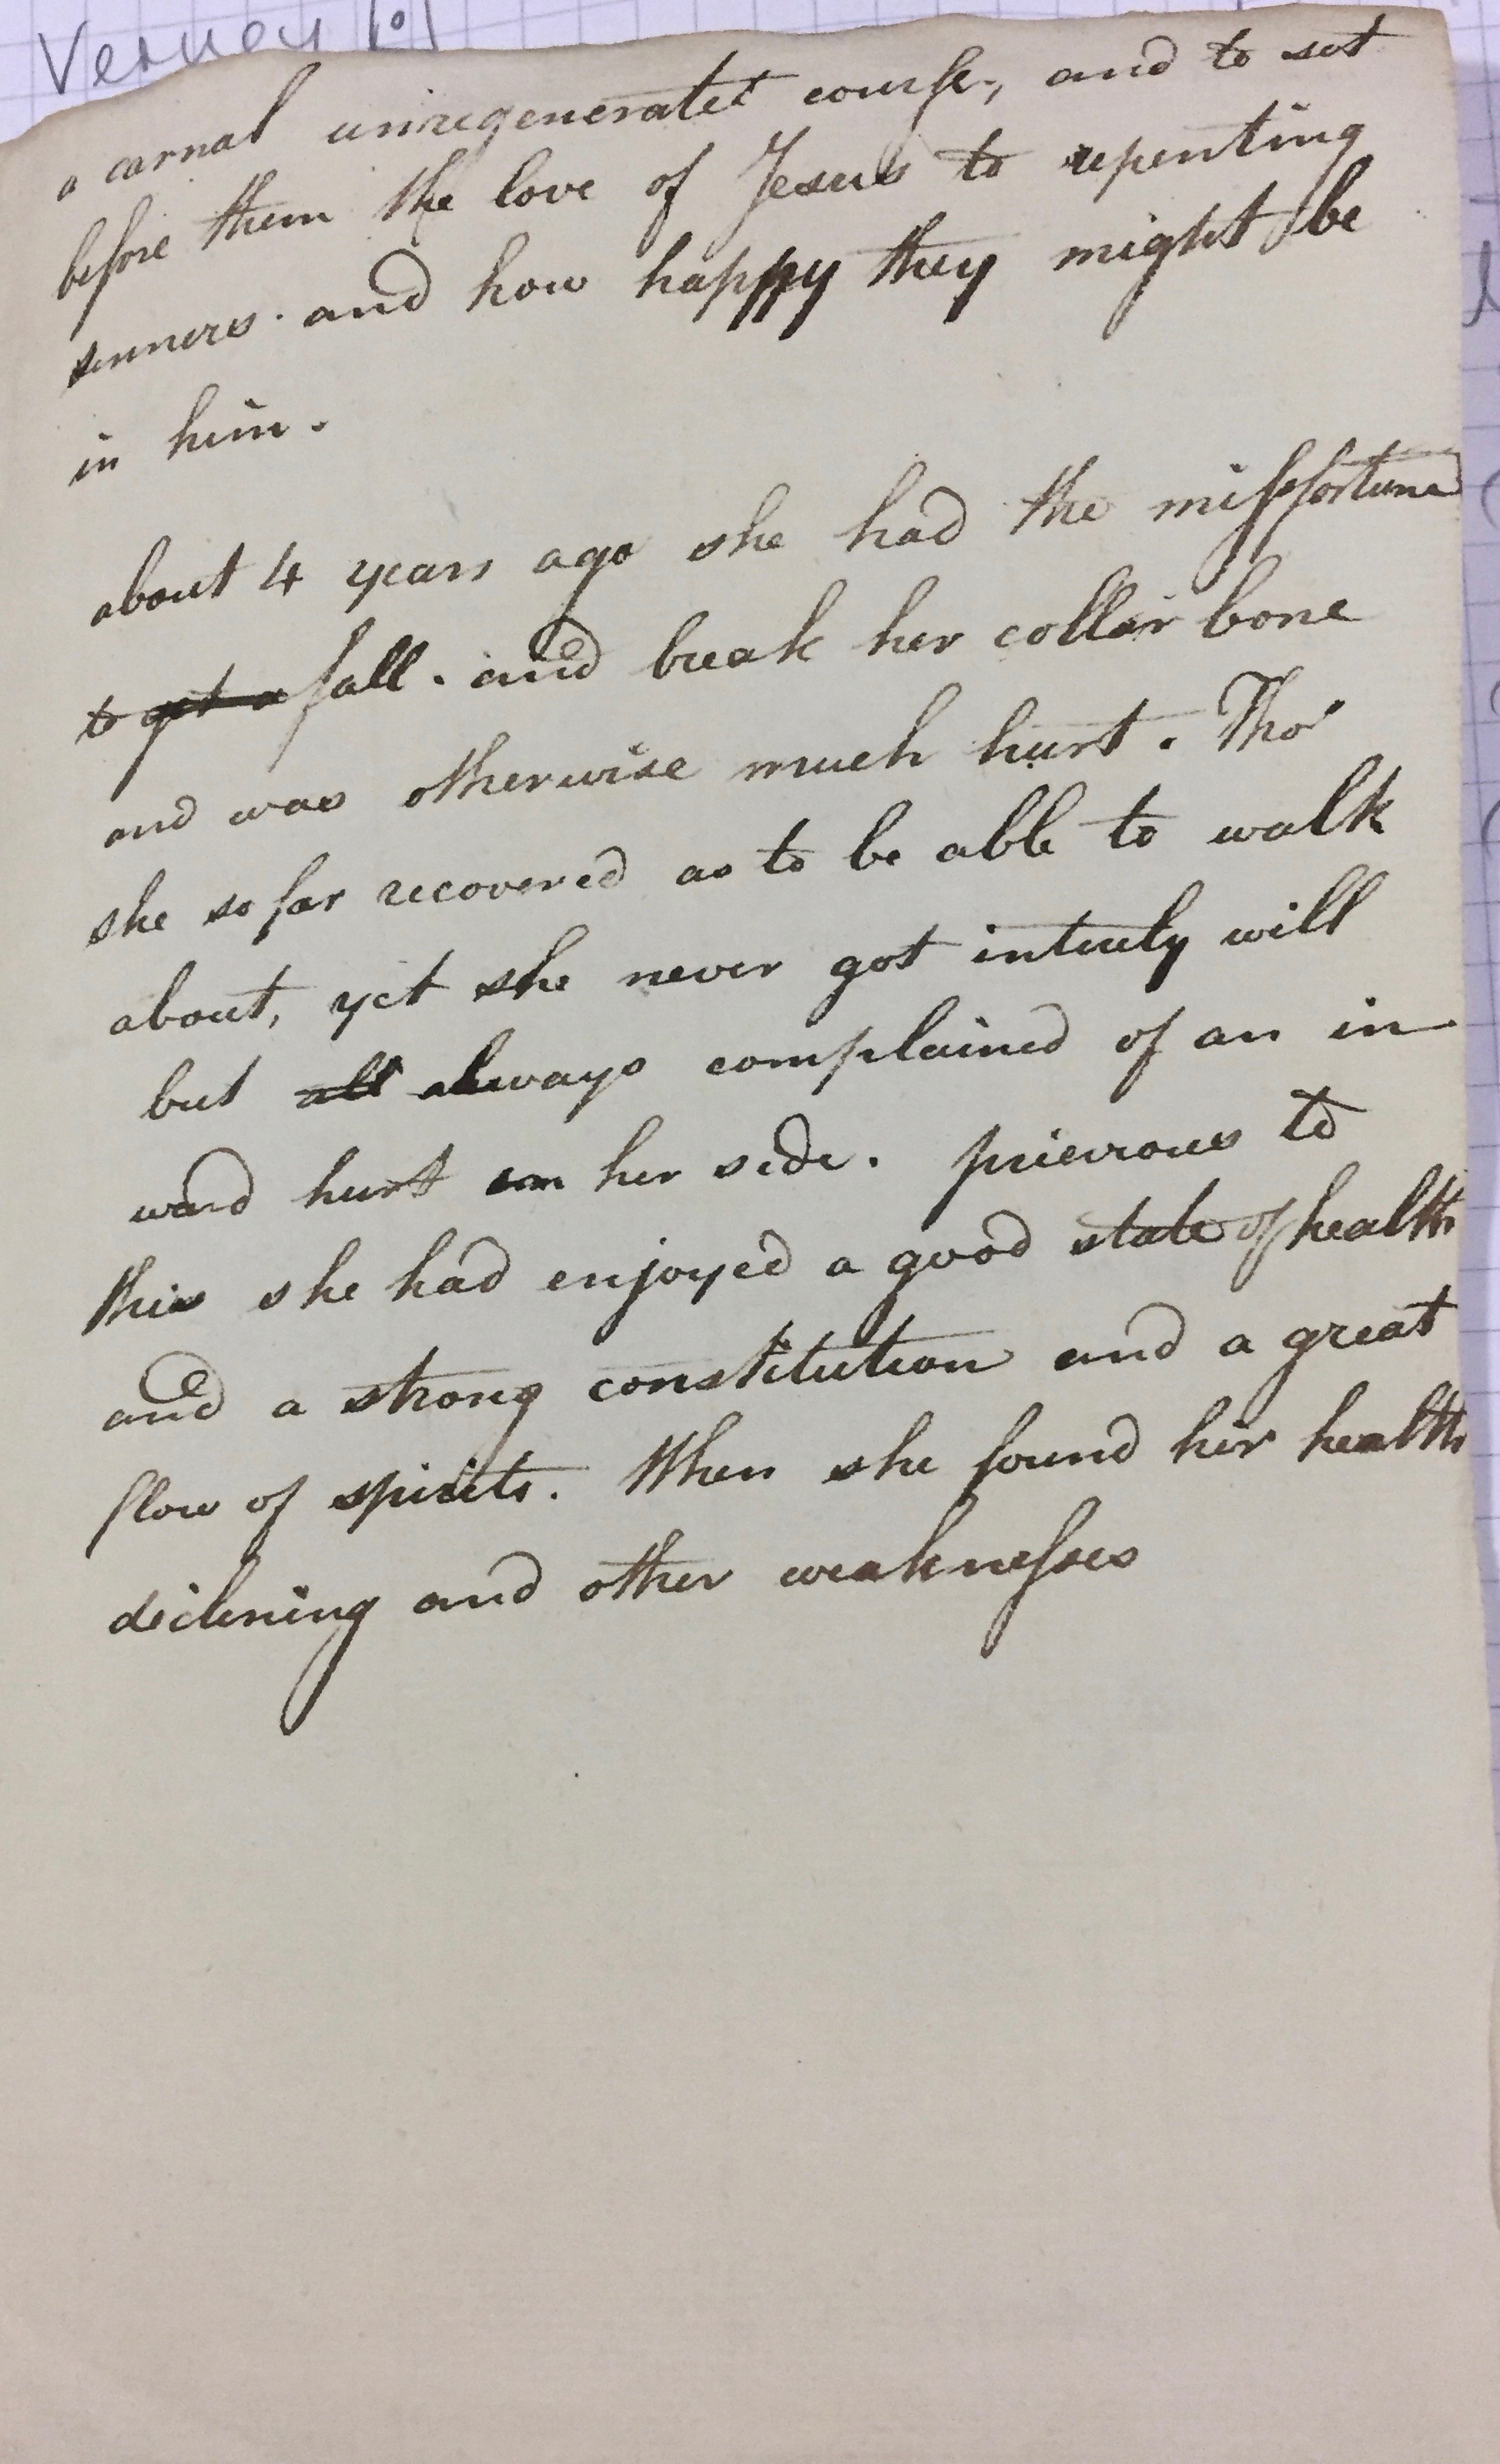 Verney [o]
a carnal unregenerated course, and to set
before them the love of Jesus to repenting
sinners. and how happy they might be
in him.
about 4 years ago she had the missfortune
to get a fall. and break her collar bone
and was otherwise much hurt. Tho'
she so far recovered as to be able to walk
about, yet she never got intirely will
but all always complained of an in
ward hurt on her side. previrous to
this she had enjoyed a good state of health
and a strong constitution and a great
flow of spirits. When she found her health
diclining and other weaknesses